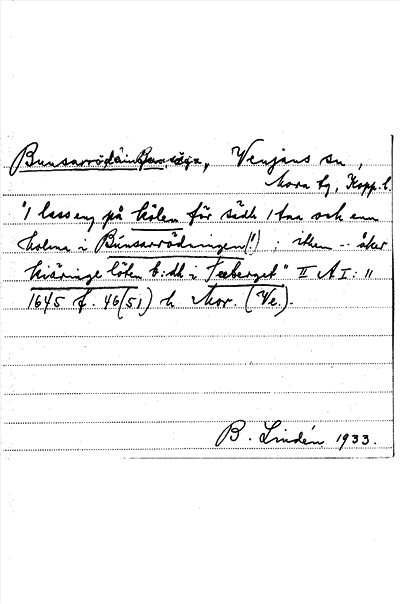 Bunsarrödningen, äga, Venjans sn,
Mora tg, Kopp. l.
"1 lass eng på kölen för sädh 1 tna och een
holma i Bunsarrödningen(!) ; item .. åker
kväringe löten b:dh i Feeberget" II A I : 11
1645 f. 46(51) h Mor. (Ve.).
B. Lindén 1933.